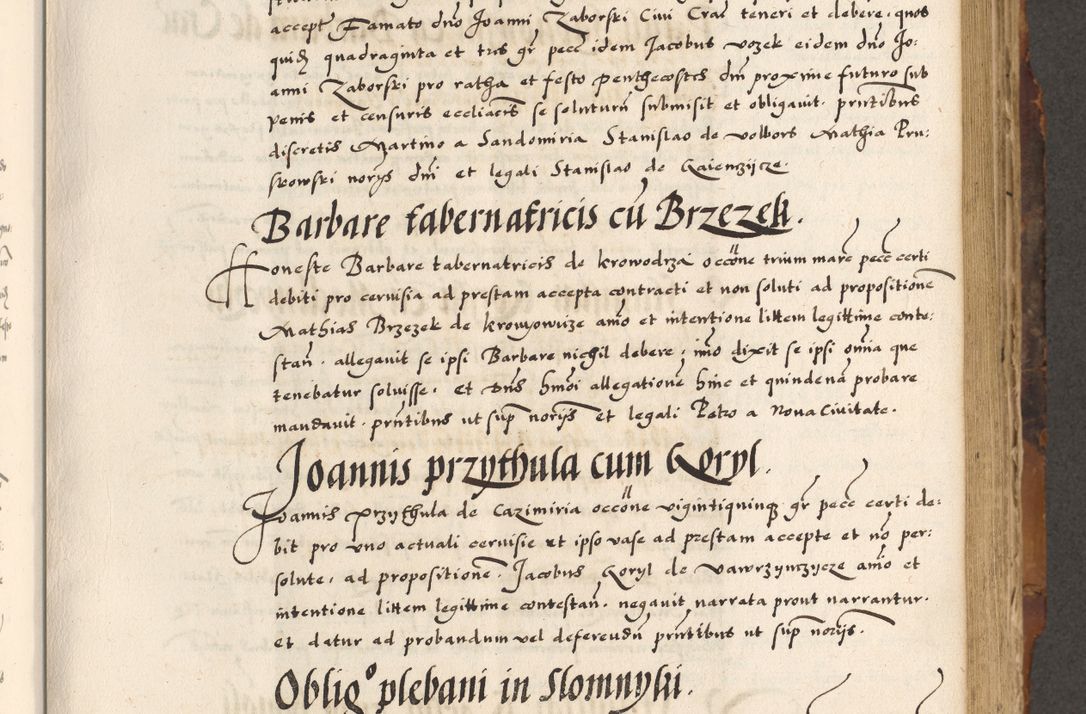 accept Famato dno Joanni Zaborski Civi Crac teneri et debere. quos
quidq quadraginta et tres gr pecc idem Jacobus vozek eidem dno Jo:
anni Zaborski pro ratha et festo penthecostes dm proxime futuro sub
penis et censuris eccliacis se soluturu submisit et obligavit. pntibus
discretis Martino a Sandomiria Stanislao de wolbors Mathia Pru:
skowski norijs dni et legali Stanislao de
Barbare tabernatricis cu Brzezek.
Honeste Barbare tabernatricis de krowodrza occone trium marc pecc certi
debiti pro cervisia ad prestam accepta contracti et non soluti ad propositione
Mathias Brzezek de kromowize anio et intentione littem legittime conte:
stan. allegavit se ipsi Barbare nichil debere, imo dixit se ipsi omia que
tenebatur solvisse. et Dns hmoi allegatione hinc et quindena probare
mandavit. pntibus ut sup norijs et legali Petro a Nova Civitate.
Joannis przythula cum Goryl.
Joannis Przythula de Cazimiria occone vigintiquinq gr pecc certi de:
bit pro uno actuali cervisie ut ipso vase ad prestam accepte et no per:
solute. ad propositione. Jacobus Goryl de Vawrzynczycze anio et
intentione littem legittime contestan. negavit narrata prout narrantur.
et datur ad probandum vel deferendu pntibus ut sup norijs.
Oblig° plebani in Slomnyki.